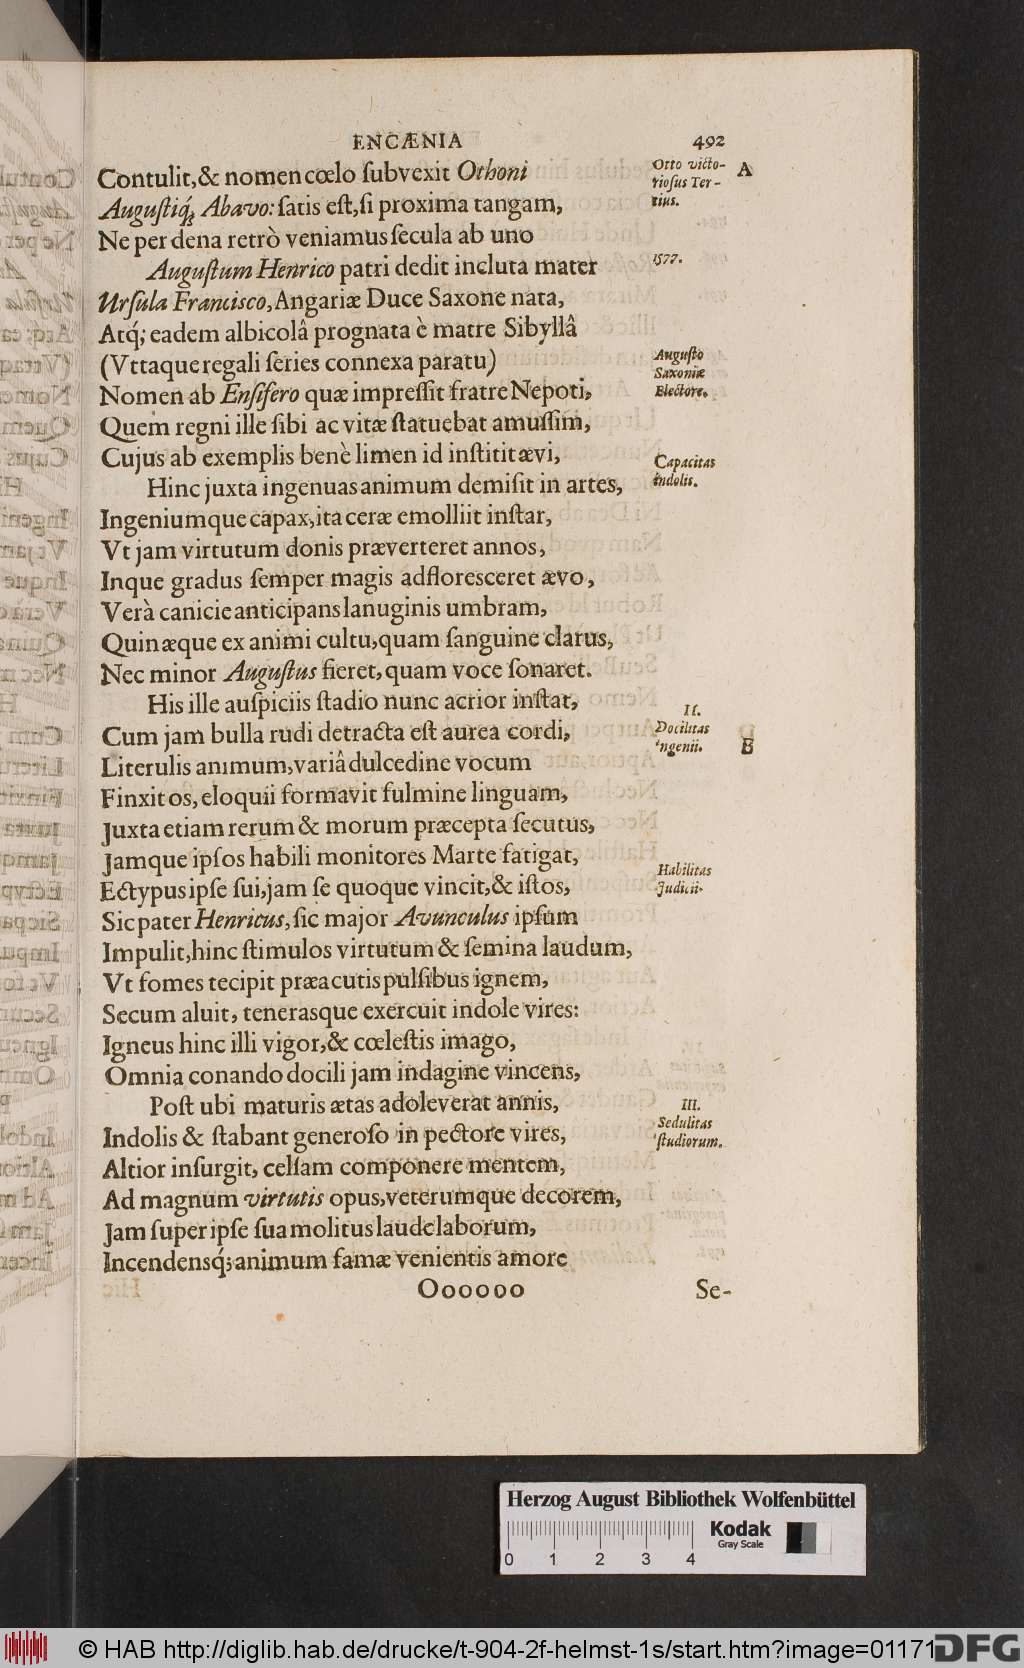 ENCÆNIA 492
Contulit,& nomen cœlo ſubvexit Othoni
Auguſtiq́; Abavo: ſatis eſt,ſi proxima tangam,
Ne per dena retrò veniamus ſecula ab uno
Auguſtum Henrico patri dedit incluta mater
Urſula Franciſco,Angariæ Duce Saxone nata,
Atq́; eadem albicolâ prognata è matre Sibyllâ
(Vttaque regali ſeries connexa paratu)
Nomen ab Enſifero quæ impreſſit fratre Nepoti,
Quem regni ille ſibi ac vitæ ſtatuebat amuſſim,
Cujus ab exemplis benè limen id inſtitit ævi,
Hinc juxta ingenuas animum demiſit in artes,
Ingeniumque capax,ita ceræ emolliit inſtar,
Vt jam virtutum donis præverteret annos,
Inque gradus ſemper magis adfloresceret ævo,
Verà canicie anticipans lanuginis umbram,
Quin æque ex animi cultu,quam ſanguine clarus,
Nec minor Auguſtus fieret,quam voce ſonaret.
His ille auſpiciis ſtadio nunc acrior inſtat,
Cum jam bulla rudi detracta eſt aurea cordi,
Literulis animum,variâ dulcedine vocum
Finxit os,eloquii formavit fulmine linguam,
Juxta etiam rerum & morum præcepta ſecutus,
Jamque ipſos habili monitores Marte fatigat,
Ectypus ipſe ſui,jam ſe quoque vincit,& iſtos,
Sic pater Henricus,ſic major Avunculus ipſum
Impulit,hinc ſtimulos virtutum & ſemina laudum,
Vt fomes tecipit præacutis pulſibus ignem,
Secum aluit, tenerasque exercuit indole vires:
Igneus hinc illi vigor,& cœleſtis imago,
Omnia conando docili jam indagine vincens,
Poſt ubi maturis ætas adoleverat annis,
Indolis & ſtabant generoſo in pectore vires,
Altior inſurgit, celſam componere mentem,
Ad magnum virtutis opus,veterumque decorem,
Jam ſuper ipſe ſua molitus laude laborum,
Incendensq́; animum famæ venientis amore
Oooooo Se-
Otto victo-
rioſus Ter-
tius.
A
1577.
Auguſto
Saxoniæ
Electore.
Capacitas
indolis.
II.
Docilitas
ingenii.
B
Habilitas
Judicii.
III.
Sedulitas
ſtudiorum.
Herzog August Bibliothek Wolfenbüttel
Kodak
Gray Scale
0 1 2 3 4
© HAB http://diglib.hab.de/drucke/t-904-2f-helmst-1s/start.htm?image=01171
DFG